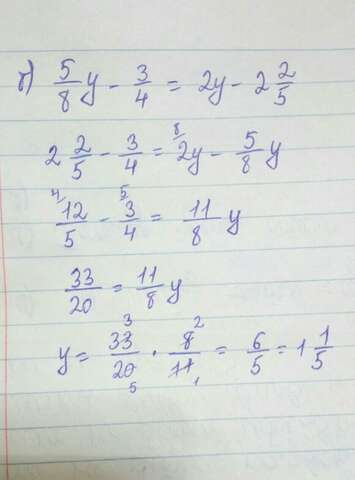 б) 5/8 y - 3/4 = 2y - 2 2/5
2 2/5 - 3/4 = ⁸2y - 5/8 y
⁴12/5 - ⁵3/4 = 11/8 y
33/20 = 11/8 y
y = 33³/20₅ · 8²/11₁ = 6/5 = 1 1/5